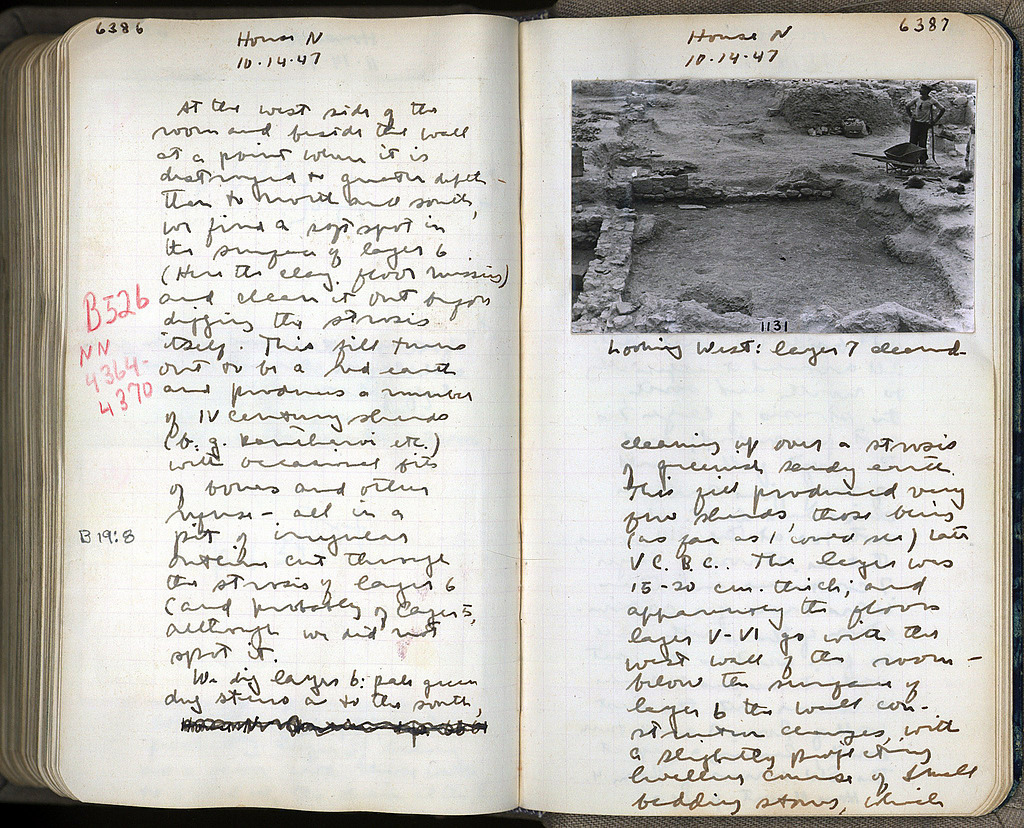 6386
House N
10.14.47
At the west side of the
room and beside the wall
at a point where it is
destroyed to greater depth
than to north and south,
we find a soft spot in
the surface of layer 6
(Here the clay floor missing)
and clean it out before
digging the strosis
itself. This fill turns
out to be a red earth
and produces a number
of IV century sherds
(b. g. kantharoi etc.)
with occasional bits
of bones and other
refuse - all in a
pit of irregular
outline cut through
the strosis of layer 6
(and probably of layer 5,
although we did not
spot it.
We dig layer 6: pale green
to the south,
B526
NN
4364-
4370
B19:8
6387
House N
10.14.47
1131
Looking West: layer 7 cleared
cleaning up over a strosis
of greenish sandy earth.
This fill produced very
few sherds, those being
(as far as I could see) late
V C. B.C.. The layer was
15-20 cm. thick; and
apparently the floors
layer V-VI go with the
west wall of the room -
below the surface of
layer 6 the wall con-
struction changes, with
a slightly projecting
levelling course of small
bedding stones, which